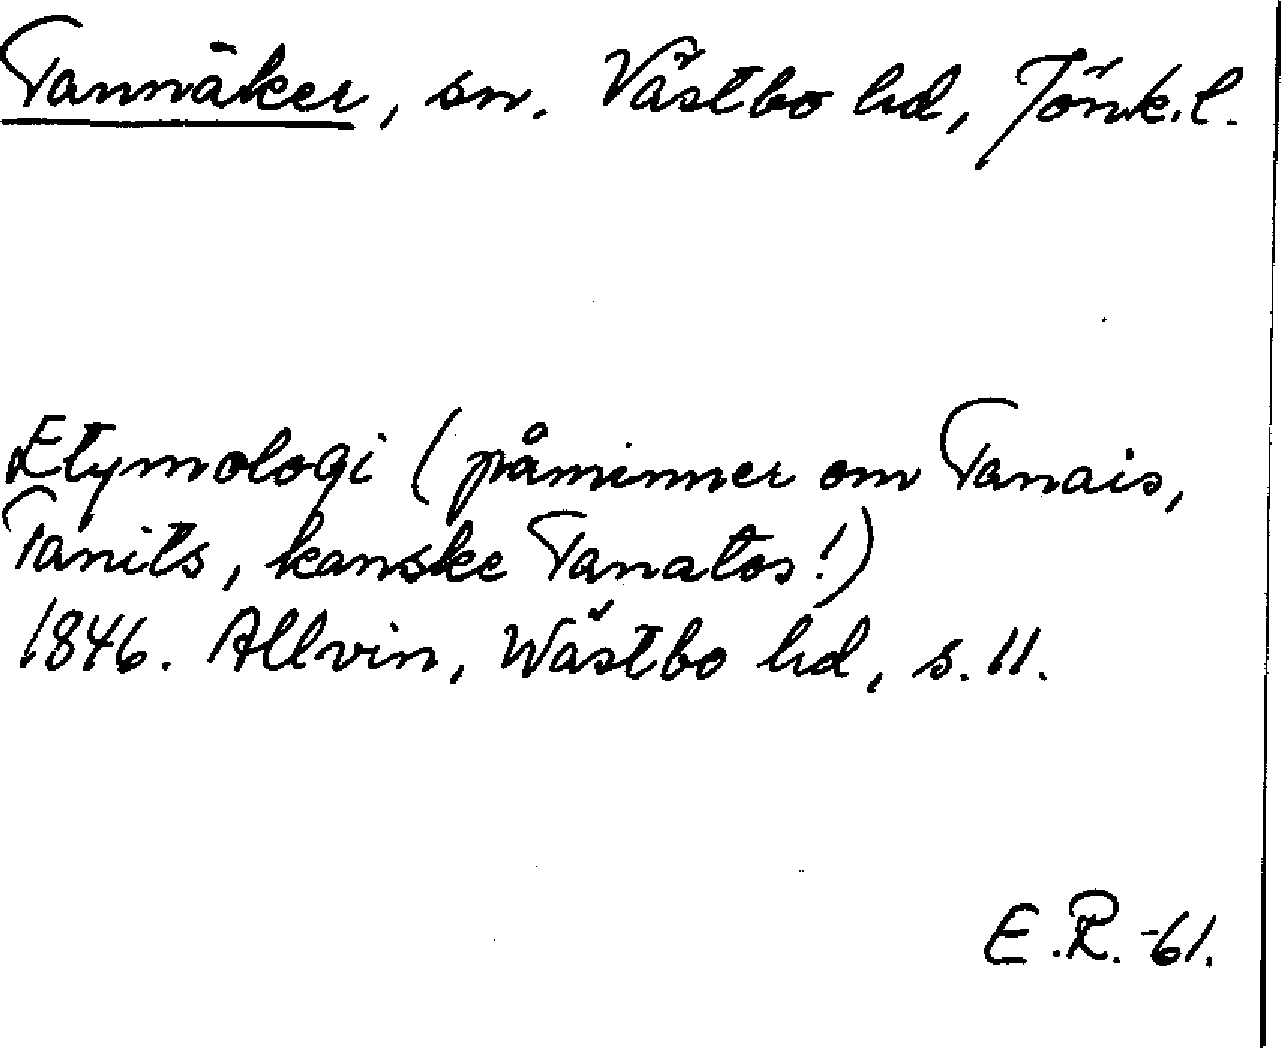 Tannåker, sn. Västbo hd, Jönk.l.
Etymologi (påminner om Tanais,
Tanits, kanske Tanatos!)
1846. Allvin, Wästbo hd, s. 11.
E.R. -61.